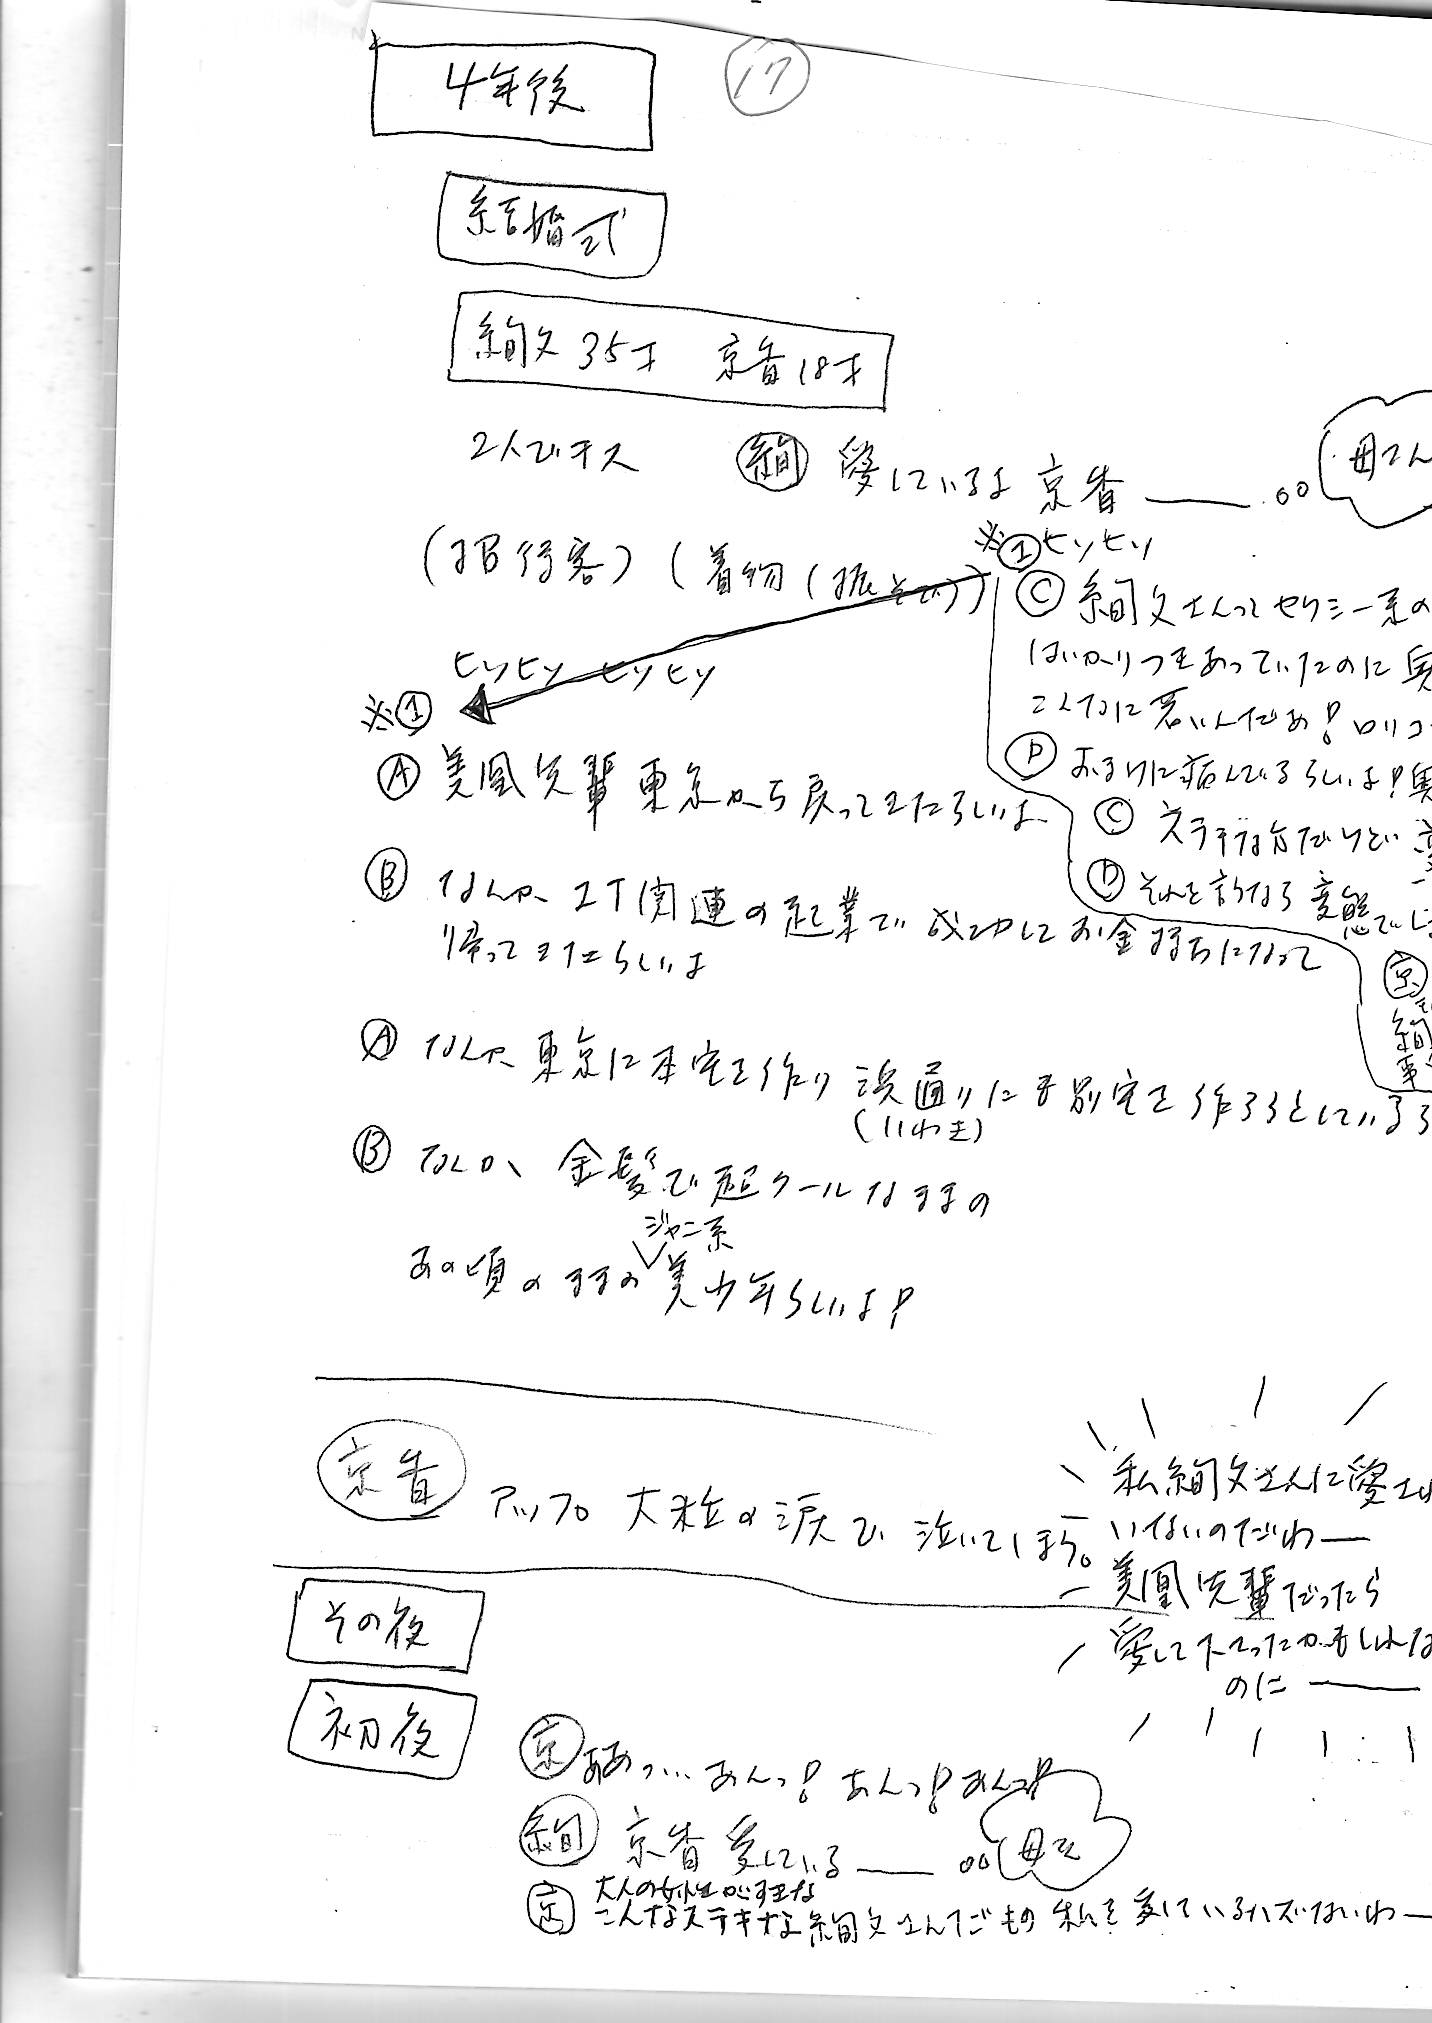 17
4年後
結婚式
絢文35才 京香18才
2人でキス
絢 愛しているよ 京香――
母さん
(招待客)(着物(振そで))
※① ヒソヒソ
C 絢文さんってセクシー系の
ばかりつきあっていたのに
こんなに若いんだあ! ロリコ
D あまりに病んでるらしいよ!
C ステキな方だけど
D それを言うなら変態でし
京
絢
事
ヒソヒソ ヒソヒソ
※①
A 美凰先輩 東京から戻ってきたらしいよ
B なんか、IT関連の起業で成功してお金持ちになって
帰ってきたらしいよ
A なんか、東京に本宅を作り 通りにも別宅を作ろうとしているら
(いわき)
B なんか、金髪で超クールなままの
ジャニ系
あの頃のままの美少年らしいよ!
京香 アップ 大粒の涙で 泣いてしまう。
私絢文さんに愛され
いないのだわ――
美凰先輩だったら
愛して下さったかもしれな
のに――
その夜
初夜
京 ああっ…あんっ! あんっ! あんっ!
絢 京香 愛している――
母さ
大人の女性がすきな
京 こんなステキな絢文さんだもの 私を愛しているハズないわ―